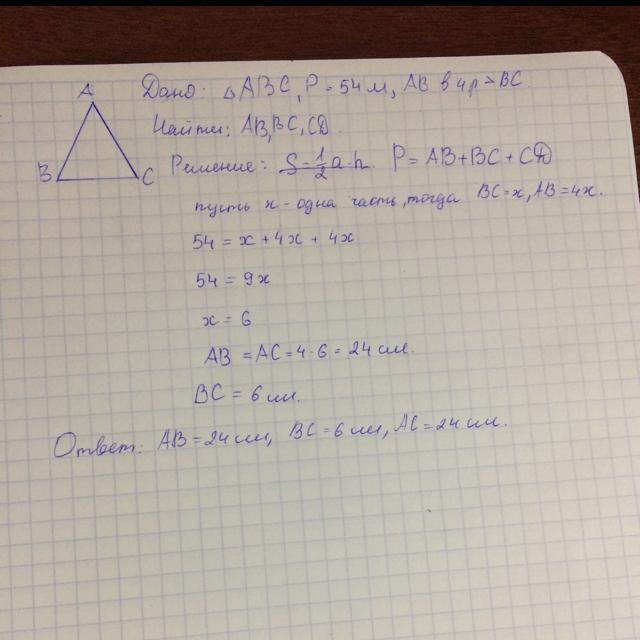 A
B
C
Дано: △ABC, P = 54 м, AB в 4 р > BC
Найти: AB, BC, CД.
Решение: S = 1/2 a·h. P = AB + BC + CД
пусть x - одна часть, тогда BC = x, AB = 4x.
54 = x + 4x + 4x
54 = 9x
x = 6
AB = AC = 4·6 = 24 см.
BC = 6 см.
Ответ: AB = 24 см, BC = 6 см, AC = 24 см.